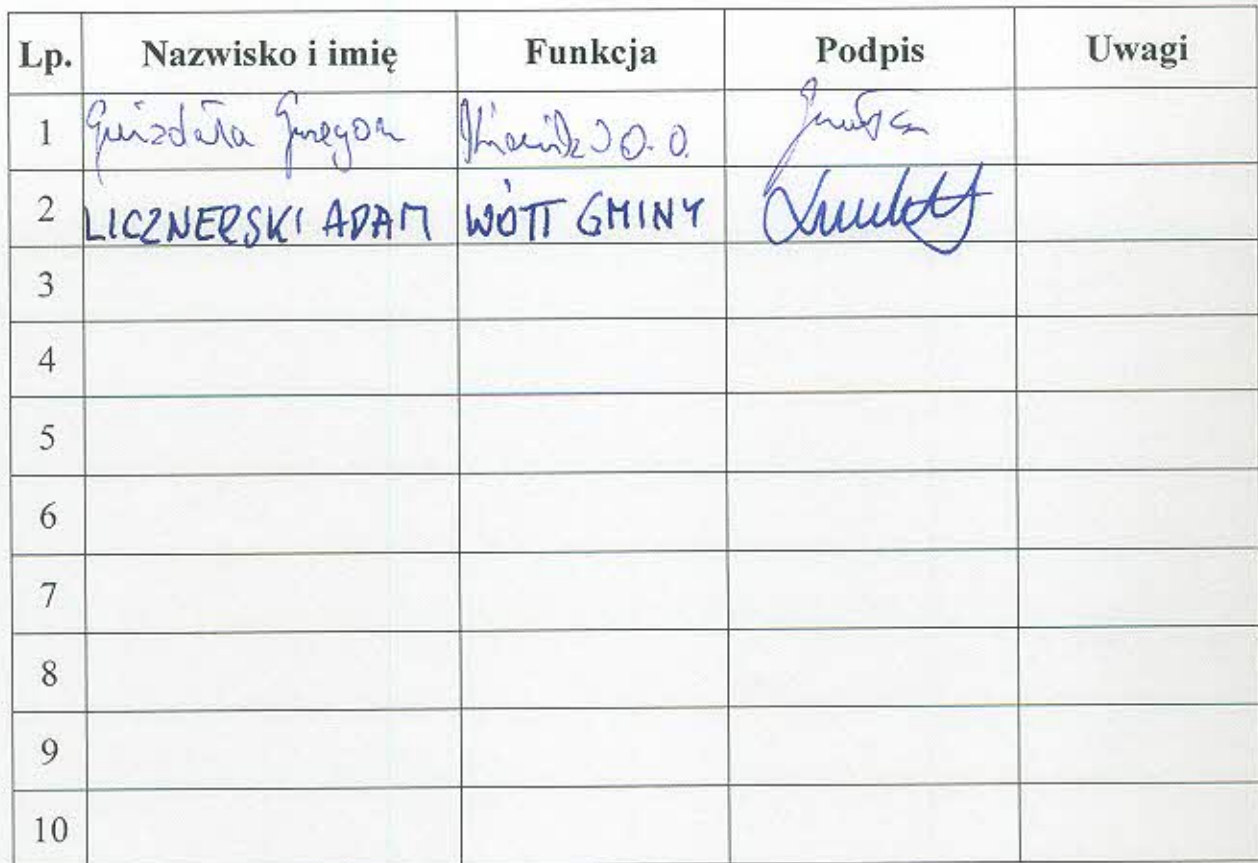 Lp. Nazwisko i imię Funkcja Podpis Uwagi
1 Gwizdała Grzegorz O.O.
2 LICZNERSKI ADAM WÓJT GMINY
3
4
5
6
7
8
9
10